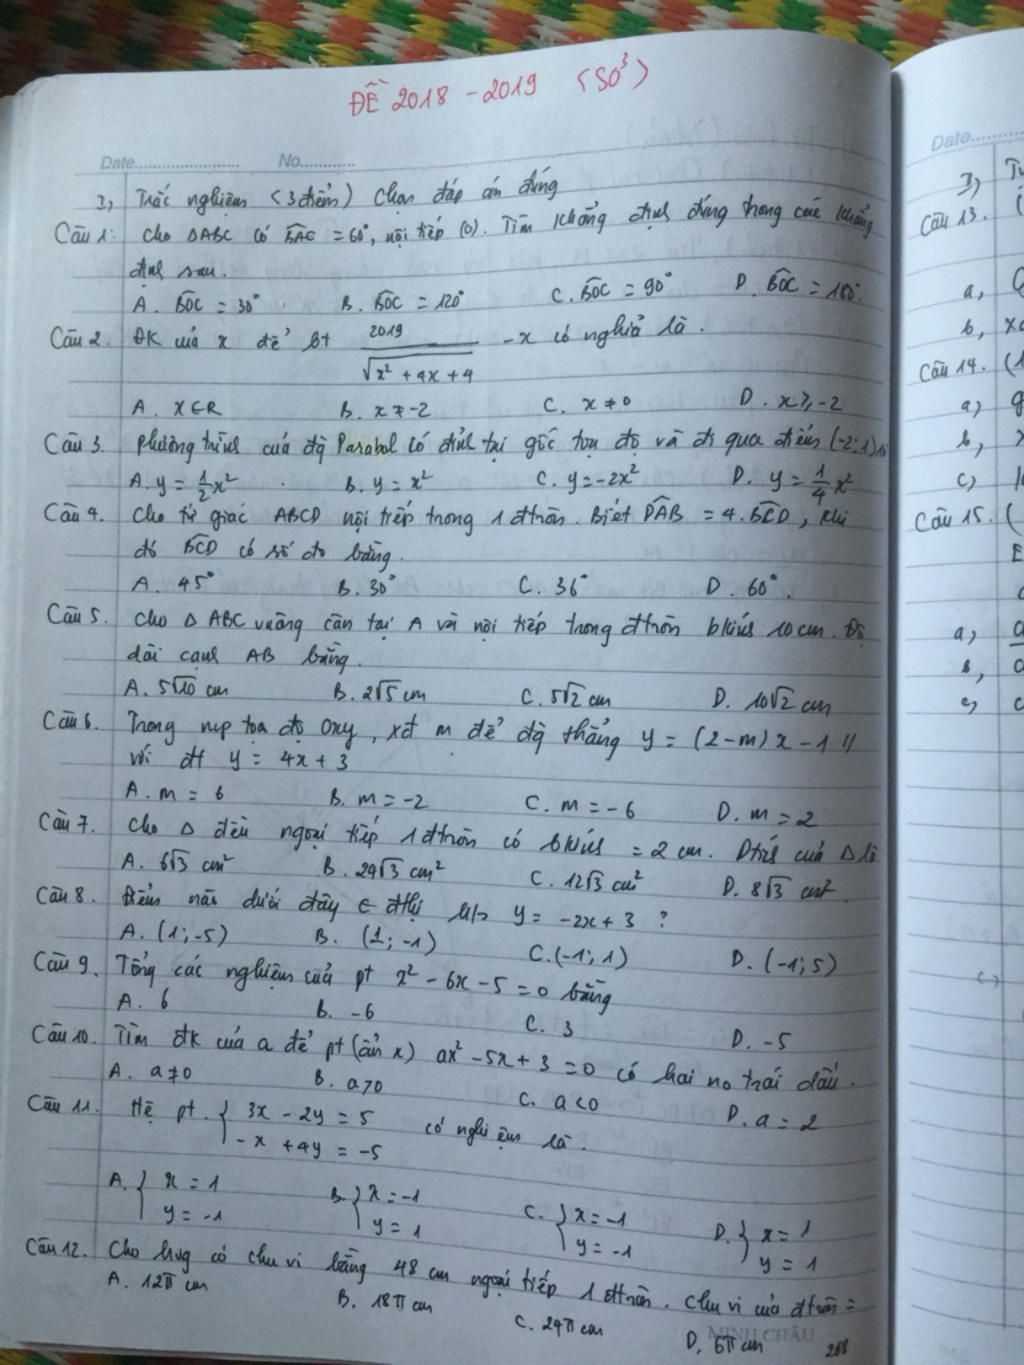 ĐỀ 2018 - 2019 (SO³)
Date.................... No............
I, Trắc nghiệm (3 điểm) Chọn đáp án đúng
Câu 1: Cho ΔABC có BAC = 60°, nội tiếp (O). Tìm khẳng định đúng trong các khẳng
định sau.
A. BOC = 30° B. BOC = 120° C. BOC = 90° D. BOC = 180°.
Câu 2. ĐK của x để bt 2019/√(x² + 4x + 4) - x có nghĩa là.
A. x ∈ R B. x ≠ -2 C. x ≠ 0 D. x ⩾ -2
Câu 3. phương trình của đg Parabol có đỉnh tại gốc toạ độ và đi qua điểm (-2; 1) là
A. y = 1/2 x² B. y = x² C. y = -2x² D. y = 1/4 x²
Câu 4. Cho tứ giác ABCD nội tiếp trong 1 đtròn. Biết DAB = 4.BCD, khi
đó BCD có số đo bằng.
A. 45° B. 30° C. 36° D. 60°.
Câu 5. Cho Δ ABC vuông cân tại A và nội tiếp trong đtròn bkính 10 cm. Độ
dài cạnh AB bằng.
A. 5√10 cm B. 2√5 cm C. 5√2 cm D. 10√2 cm
Câu 6. Trong mp tọa độ Oxy, xđ m để đg thẳng y = (2-m)x - 1 //
với đt y = 4x + 3
A. m = 6 B. m = -2 C. m = -6 D. m = 2
Câu 7. Cho Δ đều ngoại tiếp 1 đtròn có bkính = 2 cm. Dtích của Δ là
A. 6√3 cm² B. 24√3 cm² C. 12√3 cm² D. 8√3 cm².
Câu 8. Điểm nào dưới đây ∈ đthị h/s y = -2x + 3 ?
A. (1; -5) B. (1; -1) C. (-1; 1) D. (-1; 5)
Câu 9. Tổng các nghiệm của pt x² - 6x - 5 = 0 bằng
A. 6 B. -6 C. 3 D. -5
Câu 10. Tìm đk của a để pt (ẩn x) ax² - 5x + 3 = 0 có hai no trái dấu.
A. a ≠ 0 B. a > 0 C. a < 0 D. a = 2
Câu 11. Hệ pt. { 3x - 2y = 5
-x + 4y = -5 có nghiệm là.
A. { x = 1 B. { x = -1 C. { x = -1 D. { x = 1
y = -1 y = 1 y = -1 y = 1
Câu 12. Cho hvg có chu vi bằng 48 cm ngoại tiếp 1 đtròn. Chu vi của đtròn =
A. 12π cm B. 18π cm C. 24π cm D. 6π cm
MINH CHÂU 268
Date............
I)
Câu 13.
a,
b,
Câu 14.
a)
b,
c)
Câu 15.
a,
b,
c,